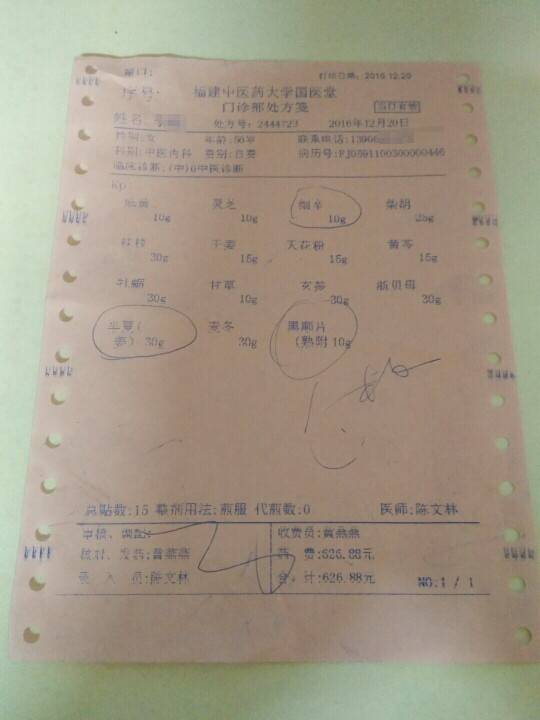 打印日期: 2016.12.20
序号:
福建中医药大学国医堂
门诊部处方笺
当日有效
姓名:
处方号: 2444723
2016年12月20日
性别:女 年龄:56岁 联系电话:13906
科别:中医内科 费别:自费 病历号:FJ0591100300000446
临床诊断:(中)0中医诊断
Rp
灵芝 细辛 柴胡
10g 10g 10g 25g
桂枝 干姜 天花粉 黄芩
30g 15g 15g 15g
牡蛎 甘草 玄参 浙贝母
30g 10g 30g 30g
半夏( 麦冬 黑顺片
姜) 30g 30g (熟附 10g
总贴数:15 草剂用法:煎服 代煎数:0 医师:陈文林
审核、调配: 收费员:黄燕燕
核对、发药:黄燕燕 药 费:626.88元
录 入 员:陈文林 合 计:626.88元 NO:1 / 1